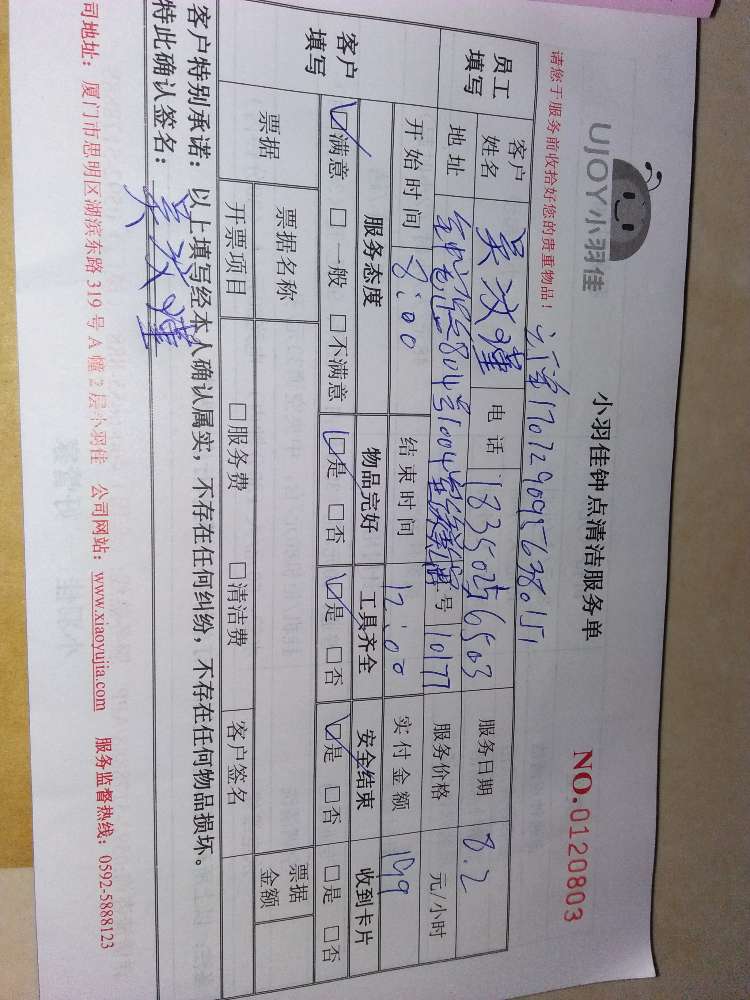 UJOY小羽佳
小羽佳钟点清洁服务单
NO.0120803
请您于服务前收拾好您的贵重物品！
员工填写
客户姓名 电话 18350256503 服务日期 8.2
地址 804号1004 号 10177 服务价格 元/小时
开始时间 8:00 结束时间 12:00 实付金额 199
客户填写
服务态度 物品完好 工具齐全 安全结束 收到卡片
☑满意 □一般 □不满意 ☑是 □否 ☑是 □否 ☑是 □否 □是 □否
票据 票据名称 票据金额
开票项目 □服务费 □清洁费 客户签名
客户特别承诺：以上填写经本人确认属实，不存在任何纠纷，不存在任何物品损坏。
特此确认签名：
司地址：厦门市思明区湖滨东路319号A幢2层小羽佳 公司网站：www.xiaoyujia.com 服务监督热线：0592-5888123